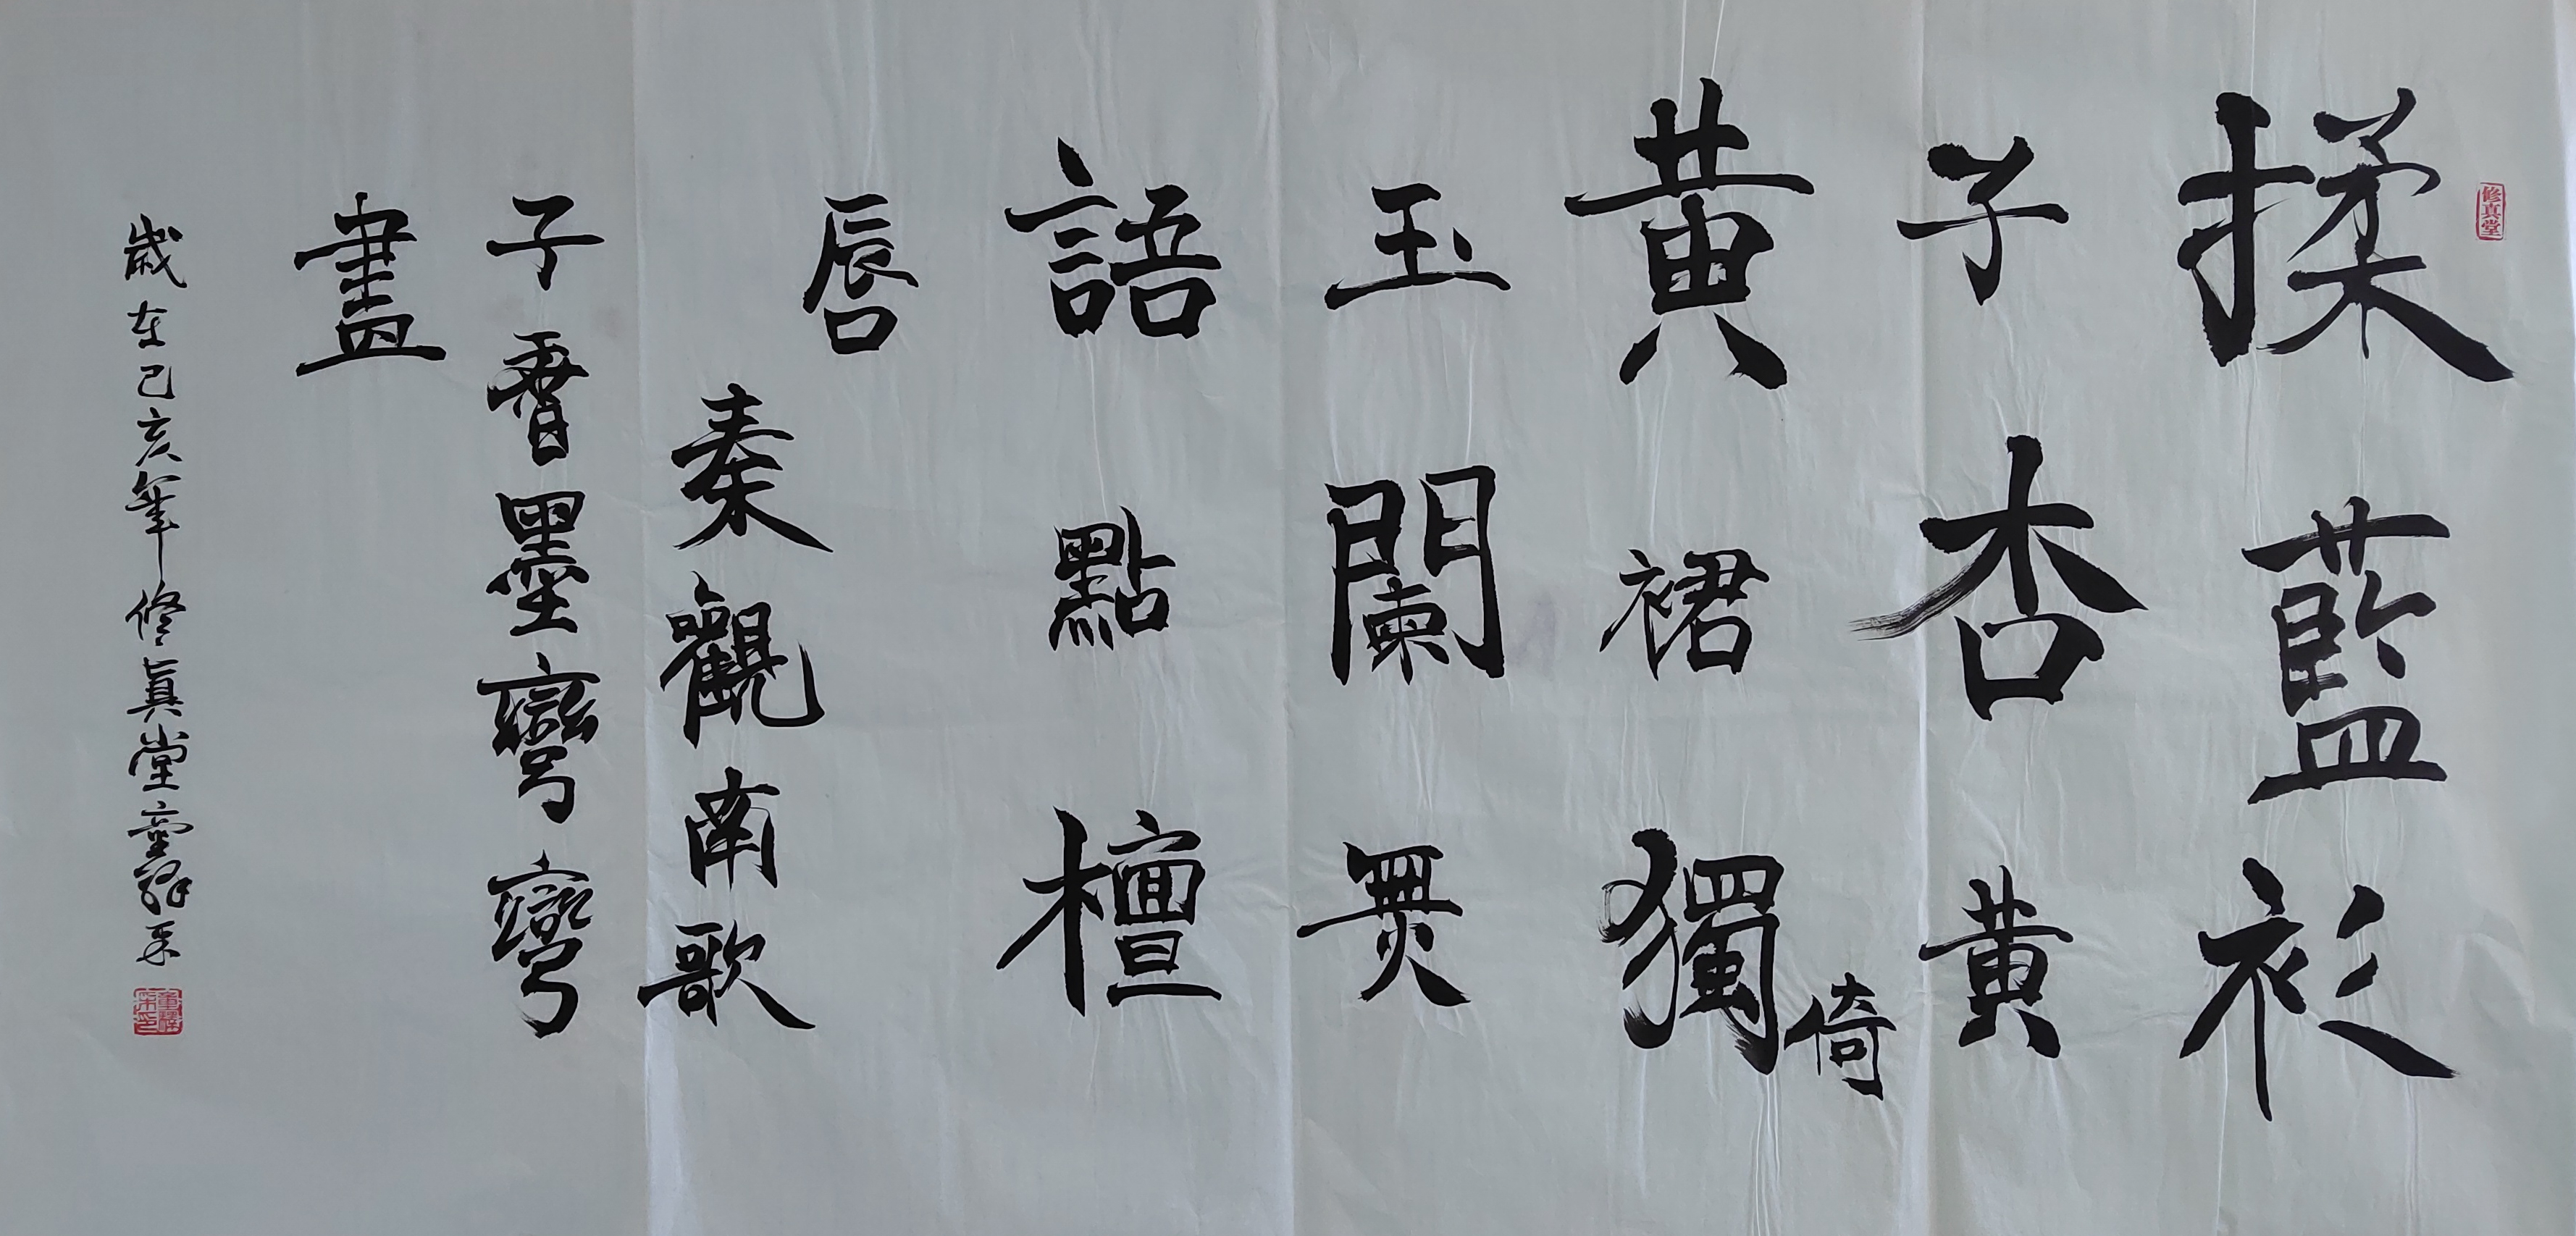 修真堂
揉藍衫
子杏黃
黃裙獨倚
玉闌無
語點檀
唇
秦觀南歌
子香墨彎彎
畫
歲在己亥年修真堂童